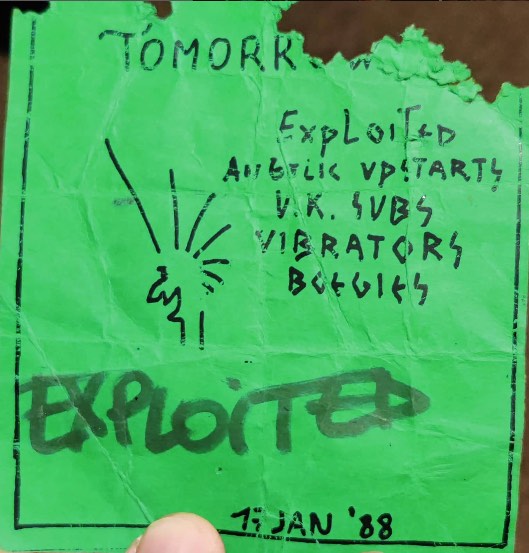 TOMORR
ExpLoiTED
ANGELIC UPSTARTS
U.K. SUBS
VIBRATORS
EXPLOiTED
JAN '88